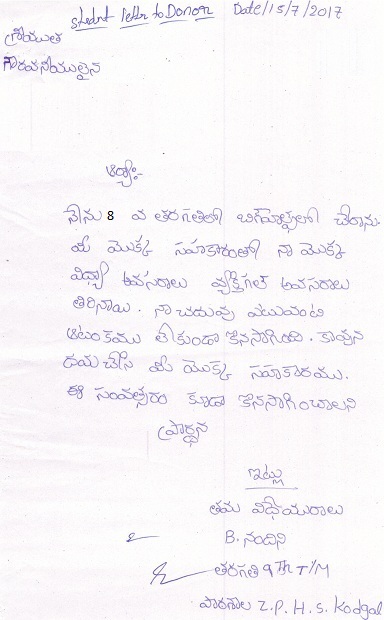 student letter to Donor Date/15/7/2017
శ్రీయుత
గౌరవనీయులైన
ఆర్య:-
నేను 8 వ తరగతిలో చేరాను.
మీ యొక్క సహకారంతో నా యొక్క
విద్యా అవసరాలు వ్యక్తిగత అవసరాలు
తీరినాయి. నా చదువు ఎటువంటి
ఆటంకము లేకుండా కొనసాగింది. కావున
దయచేసి మీ యొక్క సహకారము.
ఈ సంవత్సరం కూడా కొనసాగించాలని
ప్రార్థన
ఇట్లు
తమ విధేయురాలు
B. నందిని
తరగతి 9Th T/M
పాఠశాల Z.P.H.S. Kodgal